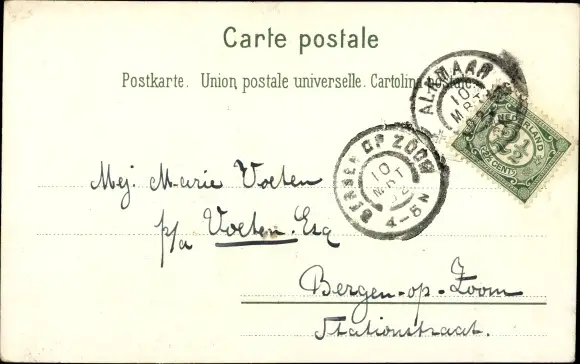 Carte postale
Postkarte. Union postale universelle. Cartolina postale.
ALKMAAR
10
MRT
NEDERLAND
2½
(2½ CENT)
BERGEN OP ZOOM
10
MRT
4-5 N
Mej. Marie Voeten
p/a Voeten. Esq
Bergen-op-Zoom
Stationstraat.